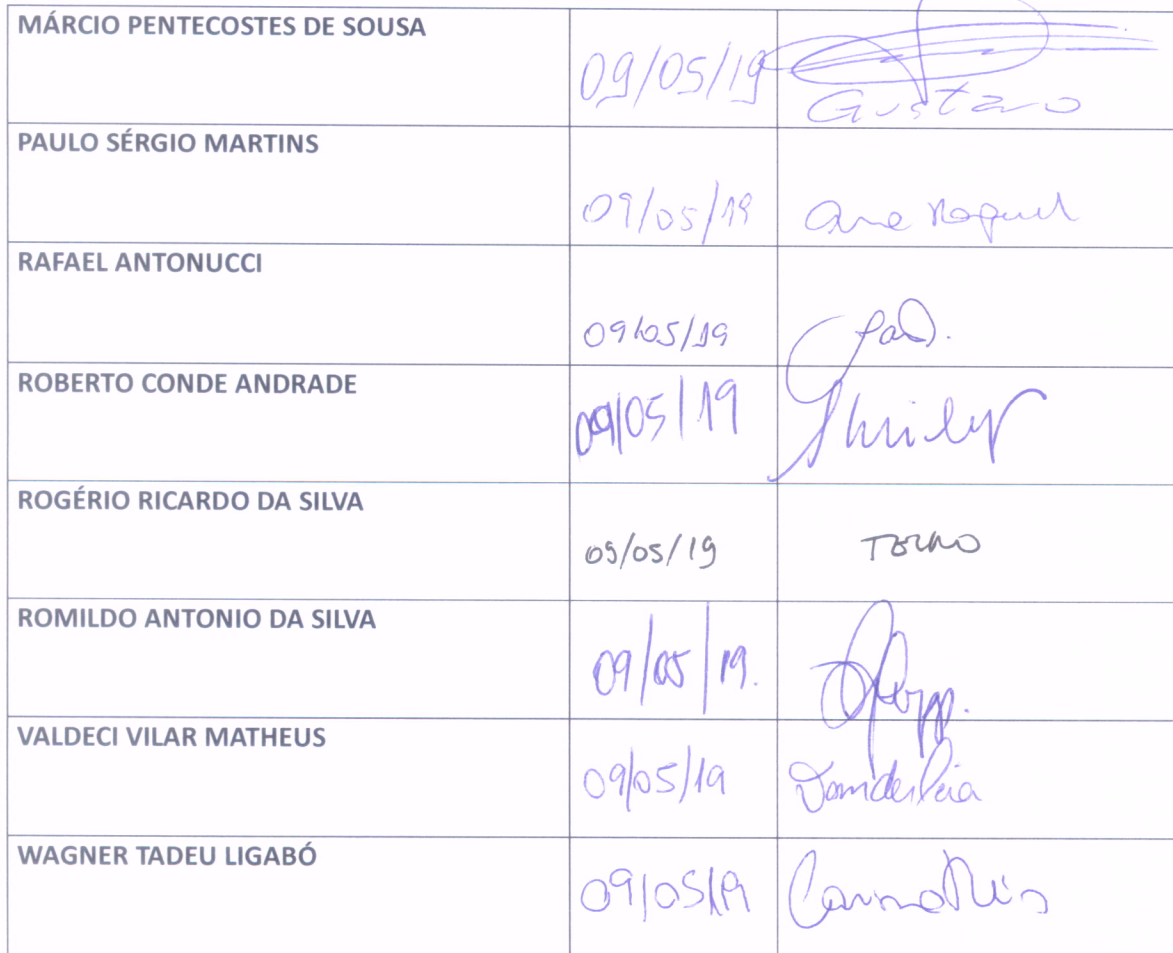 MÁRCIO PENTECOSTES DE SOUSA
09/05/19
Gustavo
PAULO SÉRGIO MARTINS
09/05/19 Ana Raquel
RAFAEL ANTONUCCI
09/05/19
ROBERTO CONDE ANDRADE
09/05/19 Shirley
ROGÉRIO RICARDO DA SILVA
09/05/19
ROMILDO ANTONIO DA SILVA
09/05/19.
VALDECI VILAR MATHEUS
09/05/19
WAGNER TADEU LIGABÓ
09/05/19